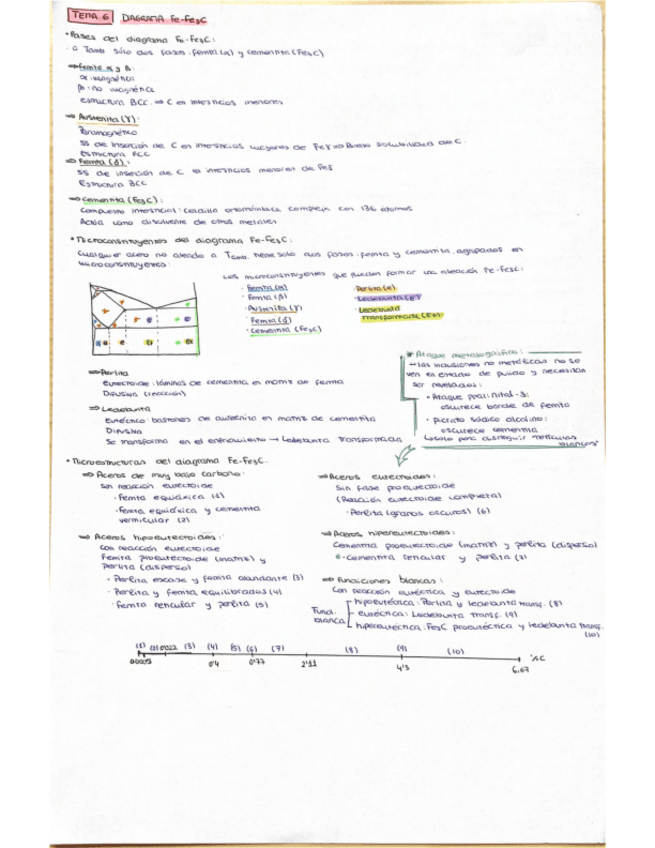 TEMA 6 DIAGRAMA Fe-Fe3C
* Fases del diagrama Fe-Fe3C:
· a Tamb sólo dos fases: ferrita (α) y cementita (Fe3C)
⇒ Ferrita α y β:
α: magnética
β: no magnética
estructura BCC ⇒ C en intersticios menores
⇒ Austenita (γ):
Paramagnético
SS de inserción de C en intersticios mayores de Feγ ⇒ Buena solubilidad de C.
Estructura FCC
⇒ Ferrita (δ):
SS de inserción de C en intersticios menores de Feδ
Estructura BCC
⇒ Cementita (Fe3C):
Compuesto intersticial: celdilla ortorrómbica compleja con 136 átomos
Actúa como disolvente de otros metales
* Microconstituyentes del diagrama Fe-Fe3C:
Cualquier acero no aleado a Tamb. tiene solo dos fases: ferrita y cementita, agrupados en
microconstituyentes:
Los microconstituyentes que pueden formar una aleación Fe-Fe3C:
· Ferrita (α)
· Ferrita (β)
· Austenita (γ)
· Ferrita (δ)
· Cementita (Fe3C)
· Perlita (e)
· Ledeburita
· Ledeburita
Transformada
⇒ Perlita
Eutectoide: láminas de cementita en matriz de ferrita
Difusiva (reacción)
⇒ Ledeburita
Eutéctico bastones de austenita en matriz de cementita
Difusiva
Se transforma en el enfriamiento → Ledeburita Transformada
* Ataque metalográfico:
→ Las inclusiones no metálicas no se
ven en estado de pulido y necesitan
ser reveladas:
· Ataque Nital-3:
oscurece borde de ferrita
· Picrato sódico alcalino:
oscurece cementita
solo para distinguir "retículos
blancos"
* Microestructuras del diagrama Fe-Fe3C.
⇒ Aceros de muy bajo carbono:
Sin reacción eutectoide
· Ferrita equiáxica (1)
· Ferrita equiáxica y cementita
vermicular (2)
⇒ Aceros hipoeutectoides:
Con reacción eutectoide
Ferrita proeutectoide (matriz) y
perlita (disperso)
· Perlita escasa y ferrita abundante (3)
· Perlita y ferrita equilibrados (4)
· Ferrita reticular y perlita (5)
⇒ Aceros eutectoides:
Sin fase proeutectoide
(Reacción eutectoide completa)
· Perlita (granos oscuros) (6)
⇒ Aceros hipereutectoides:
Cementita proeutectoide (matriz) y perlita (disperso)
· Cementita reticular y perlita (7)
⇒ Fundiciones blancas:
Con reacción eutéctica y eutectoide
Fund. blanca
hipoeutéctica: Perlita y ledeburita transf. (8)
eutéctica: Ledeburita Transf. (9)
hipereutéctica: Fe3C proeutéctica y ledeburita transf.
(10)
(1) (2) 0022 (3) (4) (5) (6) (7) (8) (9) (10)
0'4 0'77 2'11 4'3 6.67 %C